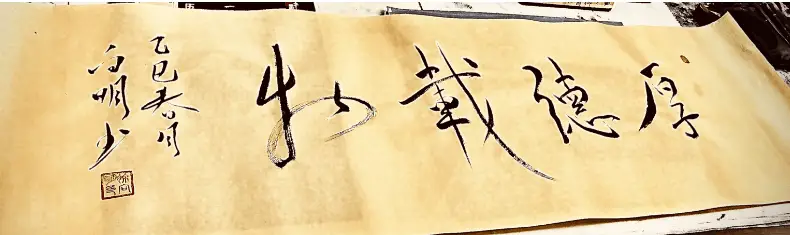 厚德載物
乙巳春月
冯明書